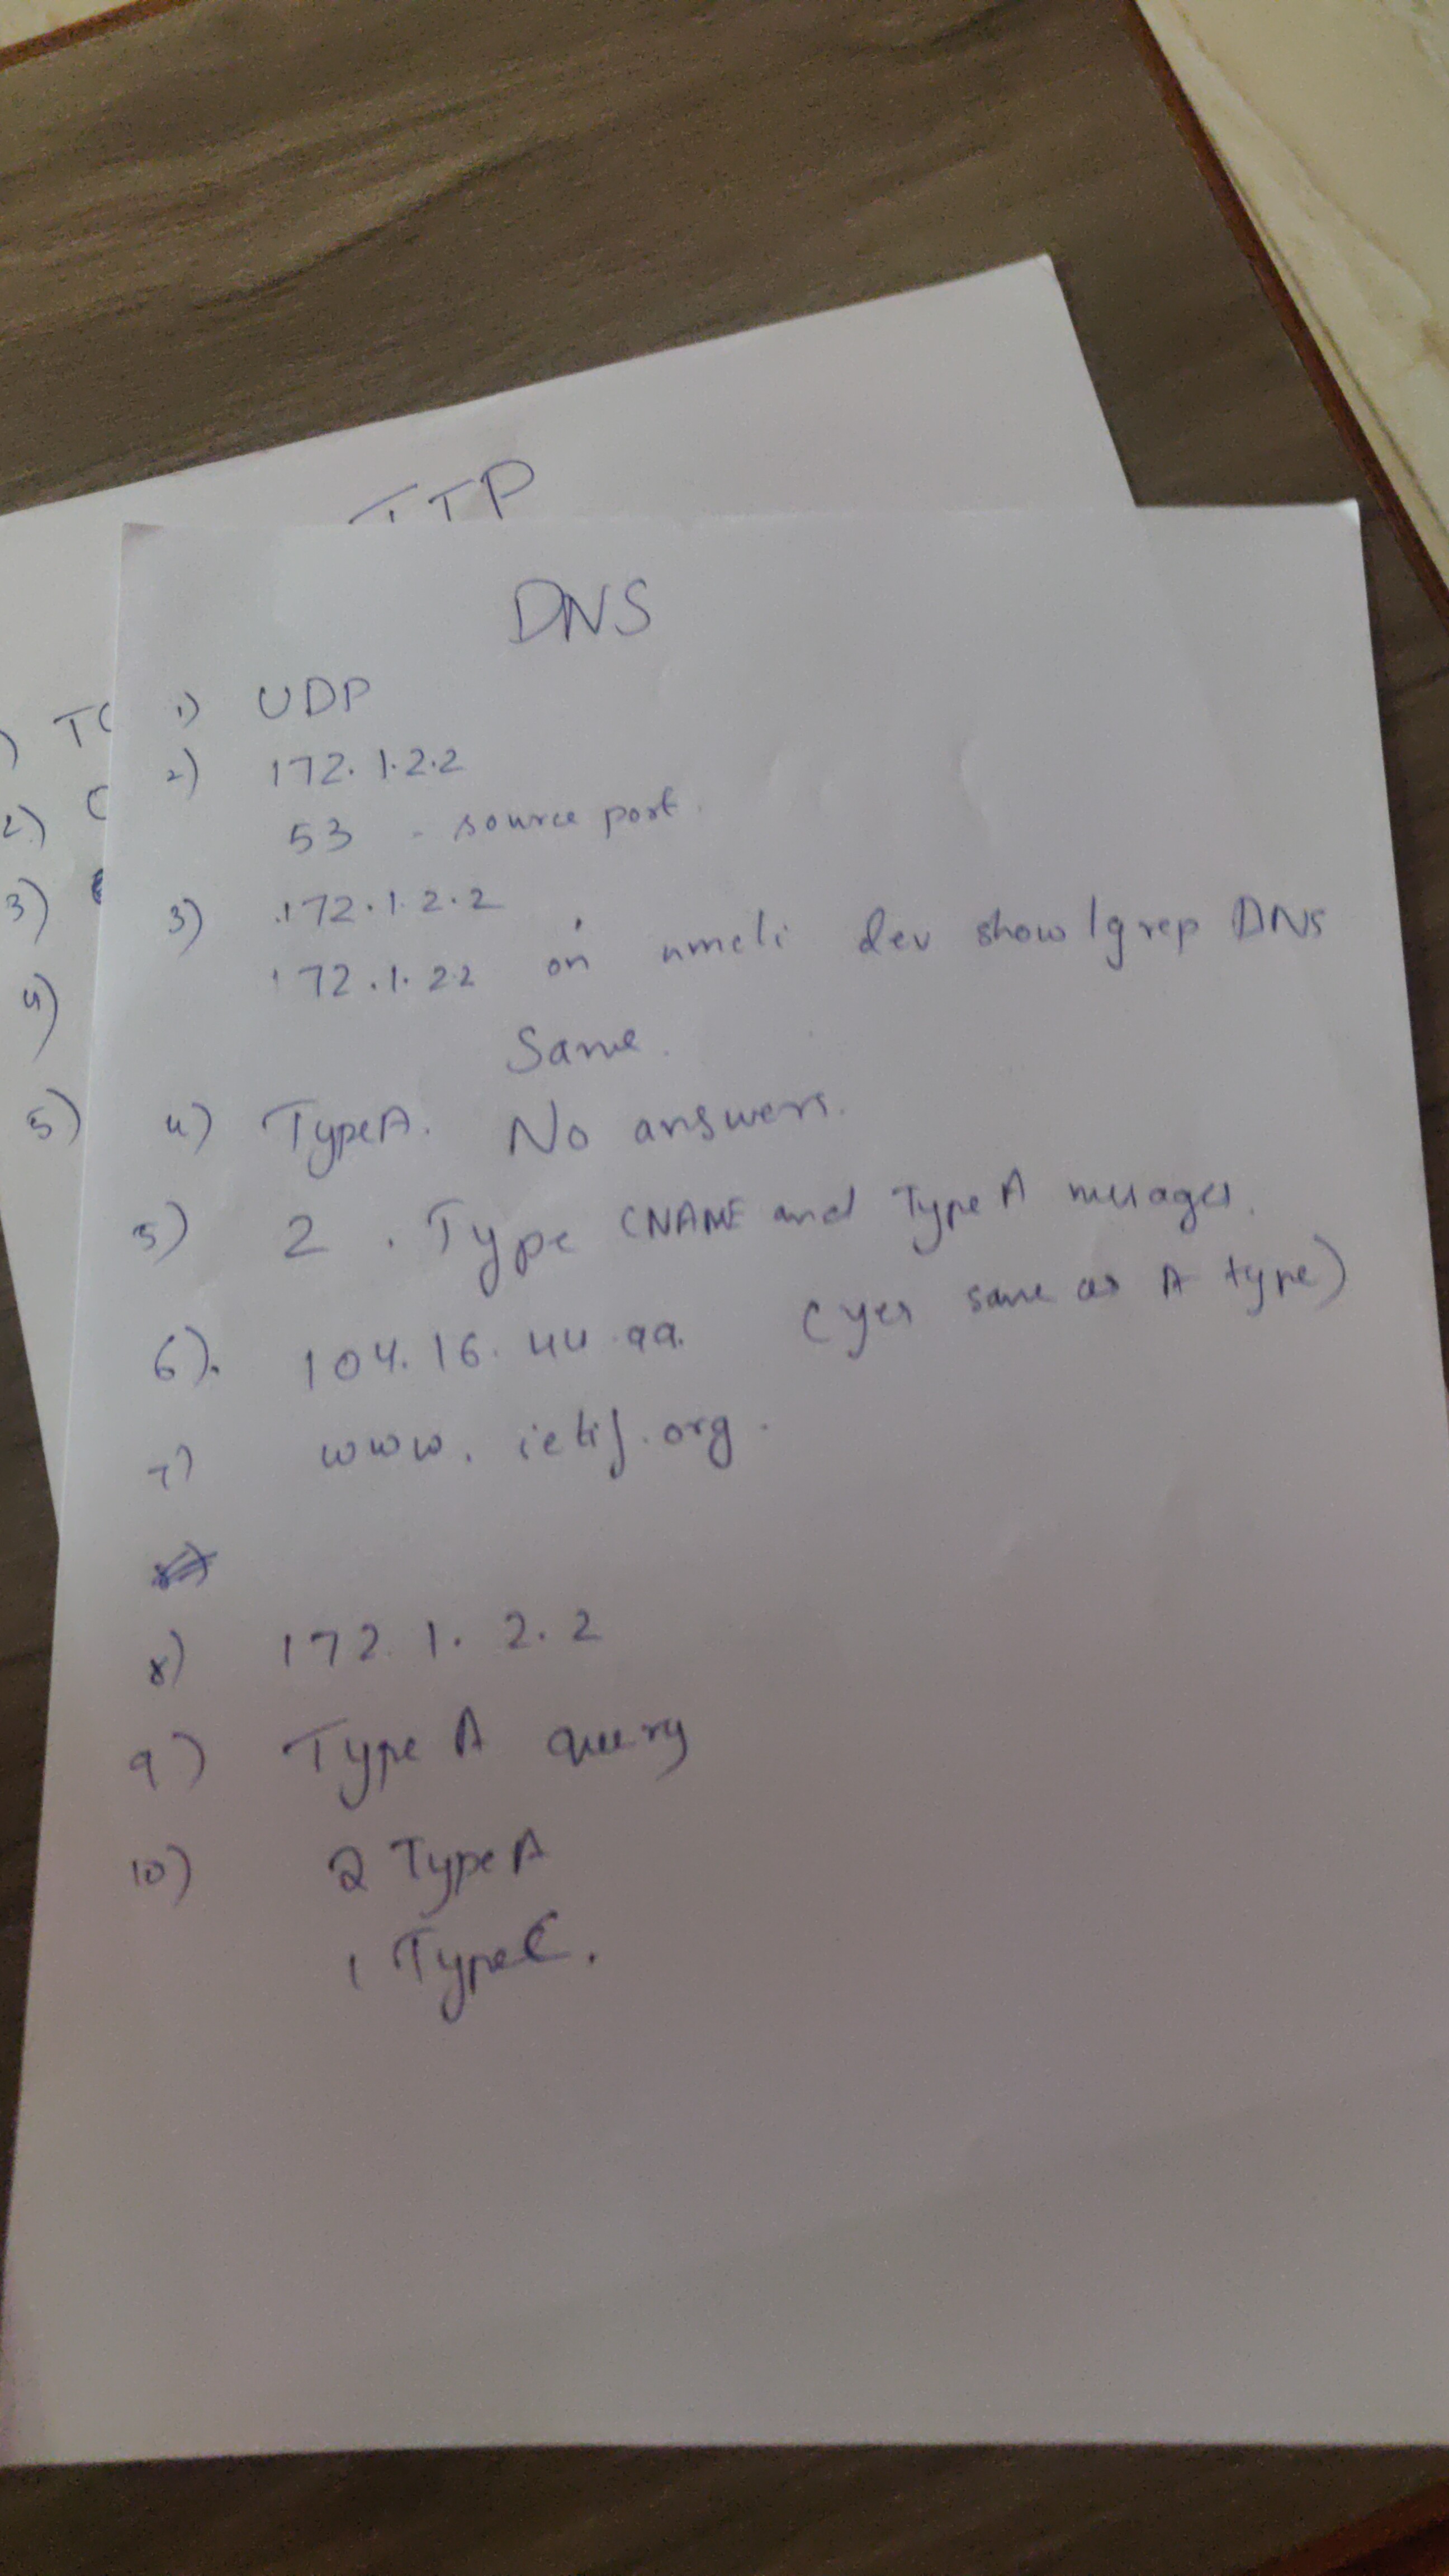 TTP
DNS
1) UDP
2) 172.1.2.2
53 - source port.
3) 172.1.2.2
172.1.22 on nmcli dev show |grep DNS
Same.
4) TypeA. No answers.
5) 2. Type CNAME and Type A messages.
6). 104.16.44.99. (yes same as A type)
7) www.ietif.org.
8) 172.1.2.2
9) Type A query
10) 2 Type A
1 TypeC.
) TC
2) C
3)
4)
5)